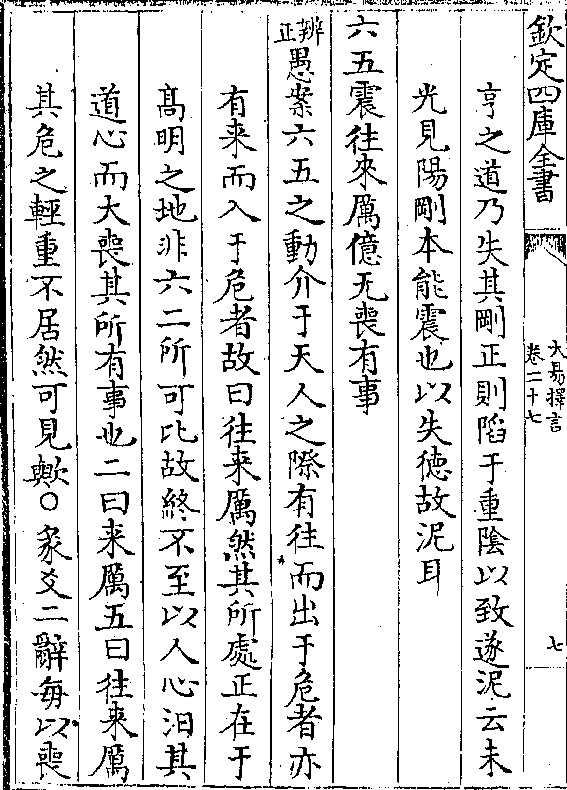 欽定四庫全書
大易擇言
卷二十七
七
亨之道乃失其剛正則䧟于重隂以致遂泥云未
光見陽剛本能震也以失徳故泥耳
六五震往來厲億无喪有事
辨正
愚案六五之動介于天人之際有往而出于危者亦
有来而入于危者故曰往来厲然其所處正在于
髙明之地非六二所可比故終不至以人心汨其
道心而大喪其所有事也二曰来厲五曰往来厲
其危之輕重不居然可見歟○彖爻二辭毎以喪